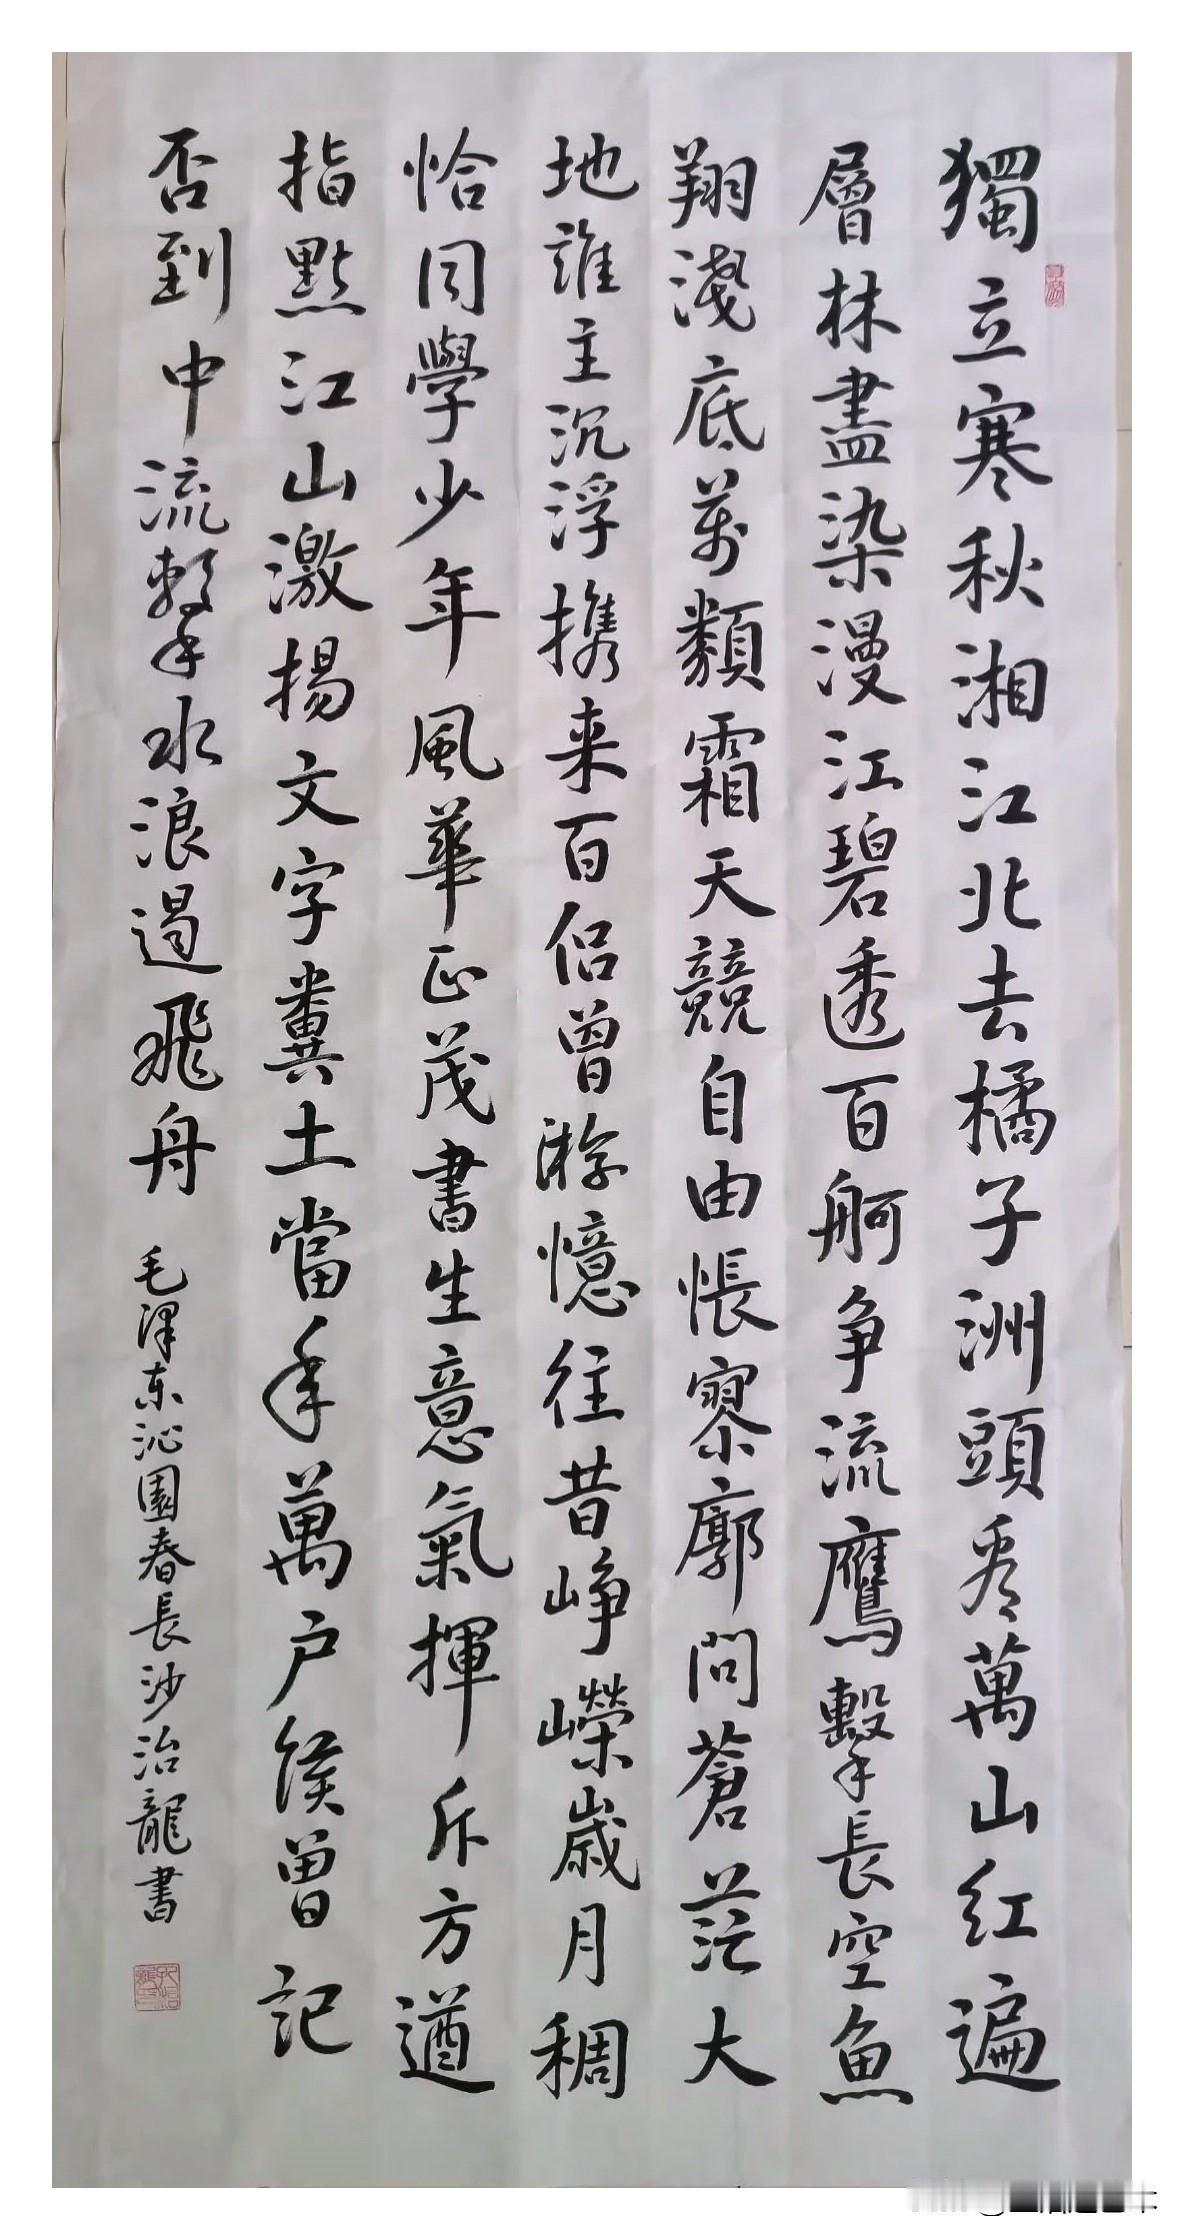 獨立寒秋湘江北去橘子洲頭看萬山红遍
層林盡染漫江碧透百舸争流鷹擊長空魚
翔淺底萬類霜天競自由悵寥廓問蒼茫大
地誰主沉浮携来百侣曾游憶往昔峥嶸歲月稠
恰同學少年風華正茂書生意氣揮斥方遒
指點江山激揚文字糞土當年萬户侯曾記
否到中流擊水浪遏飛舟
毛澤东沁園春長沙治龍書